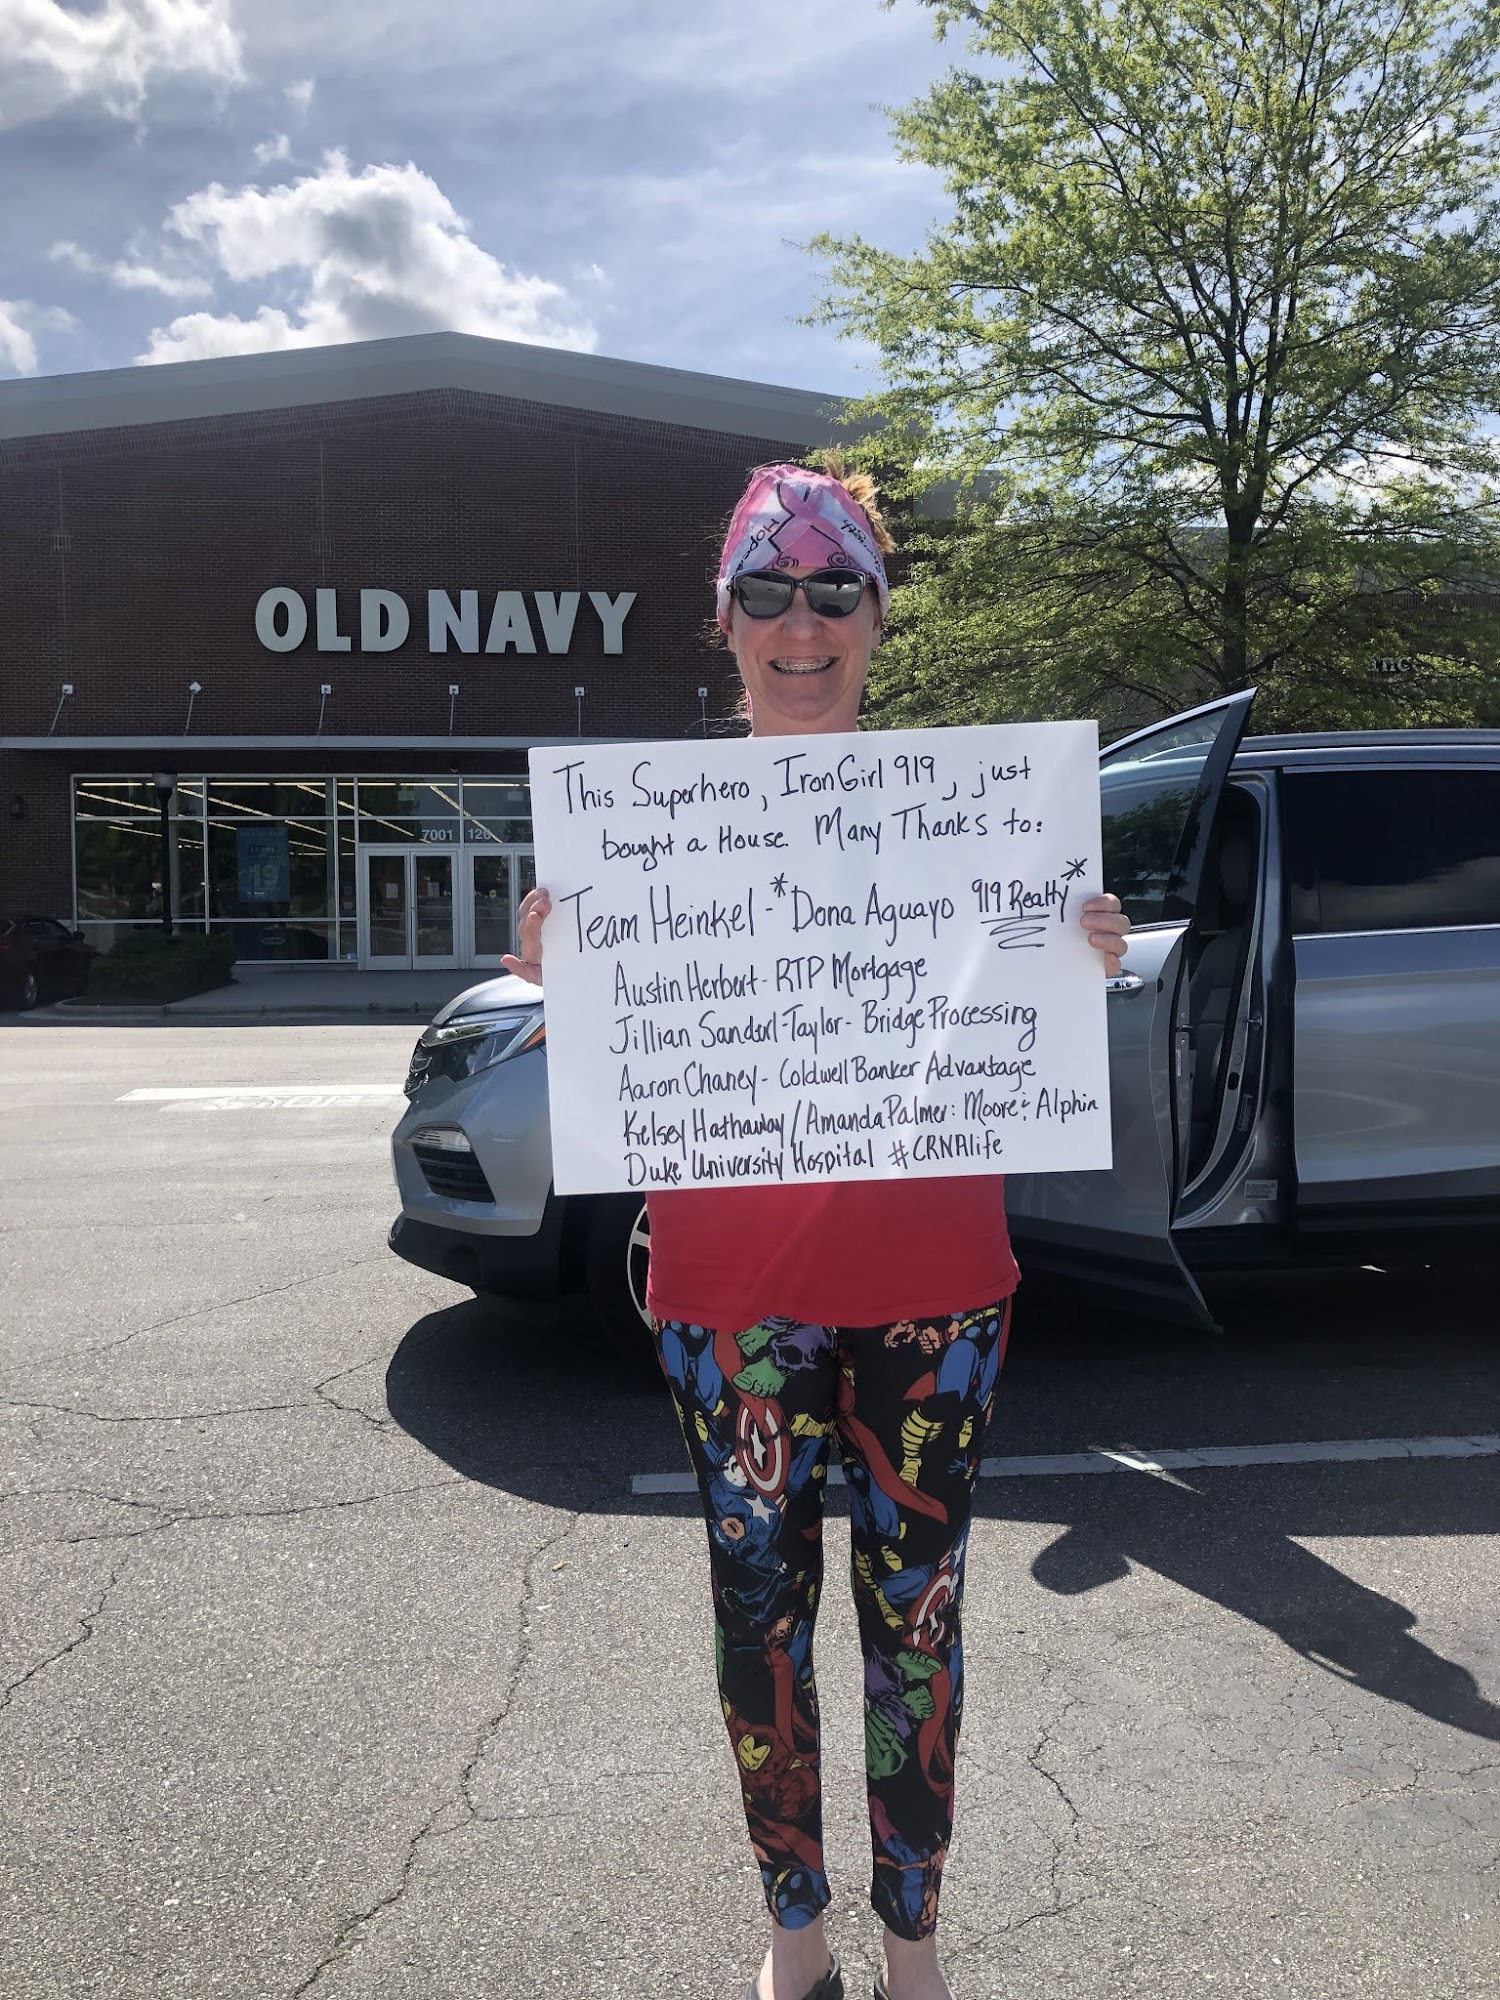 OLD NAVY
7001 120
19
Hope
Strength
This Superhero, IronGirl 919, just
bought a House. Many Thanks to:
Team Heinkel - *Dona Aguayo 919 Realty*
Austin Herbert - RTP Mortgage
Jillian Sanderl-Taylor - Bridge Processing
Aaron Chaney - Coldwell Banker Advantage
Kelsey Hathaway / Amanda Palmer: Moore & Alphin
Duke University Hospital #CRNAlife